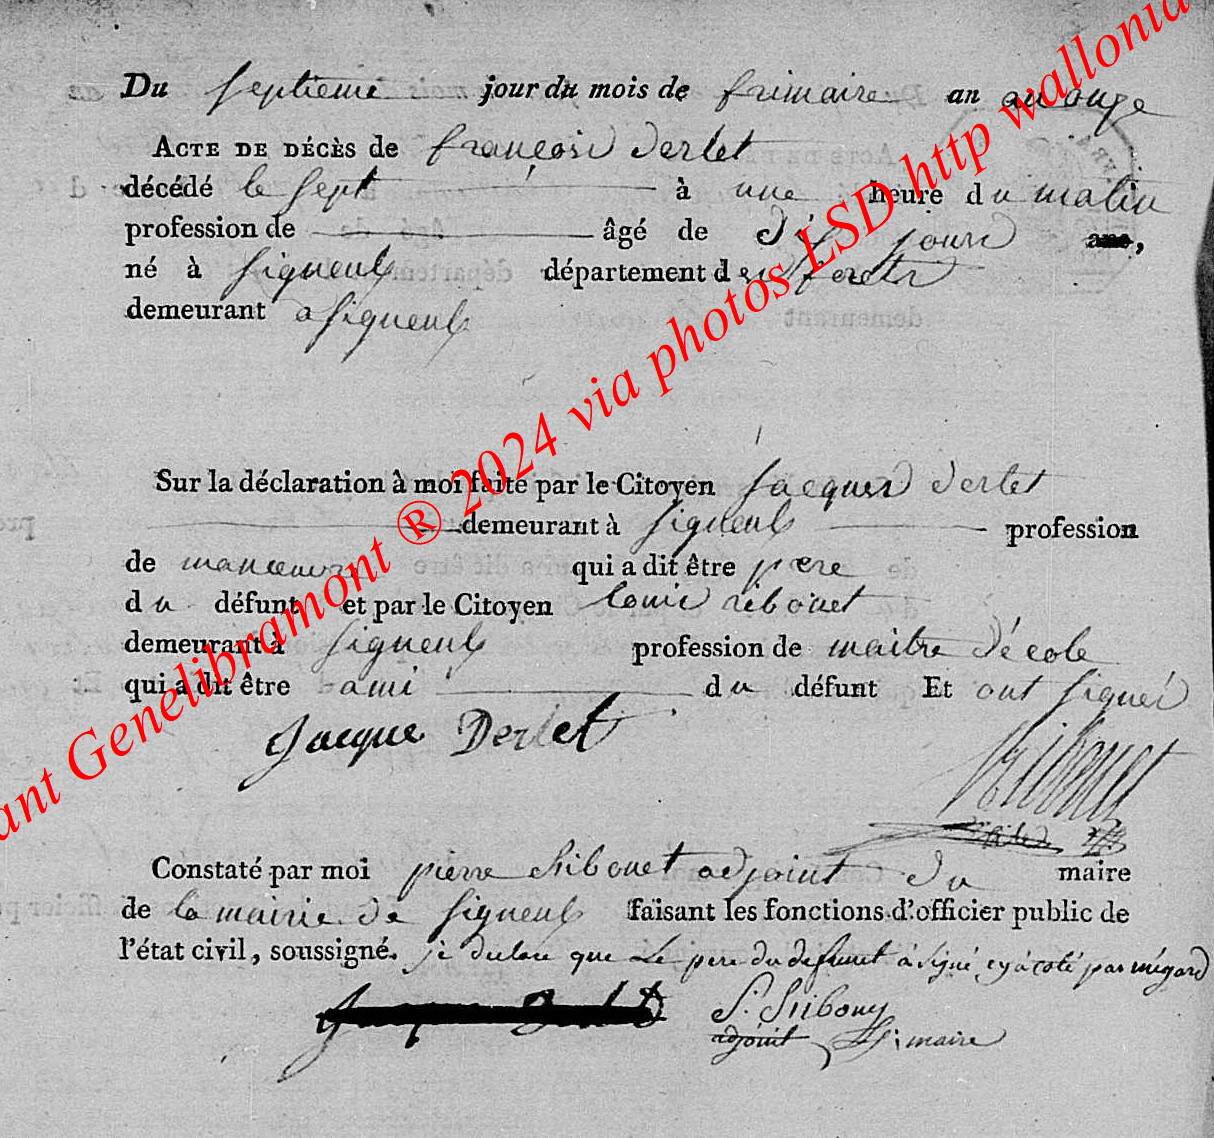 Du septieme jour du mois de frimaire an an onze
ACTE DE DÉCÈS de françois derlet
décédé le sept à une heure du matin
profession de âgé de dix jours ans,
né à Signeulx département des forets
demeurant a Signeulx
Sur la déclaration à moi faite par le Citoyen Jacques derlet
demeurant à Signeulx profession
de manœuvre qui a dit être pere
du défunt et par le Citoyen Louis ribouet
demeurant à Signeulx profession de maitre d'école
qui a dit être ami du défunt Et ont signés
Jacque Derlet
Ribouet
Constaté par moi pierre Ribouet adjoint du maire
de la mairie de Signeulx faisant les fonctions d'officier public de
l'état civil, soussigné. je declare que Le pere du defunt à signé cy à coté par mégard
adjoint maire
ant Genelibramont ® 2024 via photos LSD http wallonia